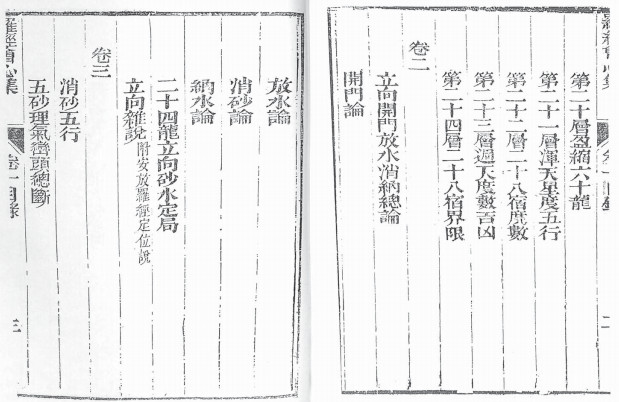 羅經會心集
卷一目錄
二
第二十層盈縮六十龍
第二十一層渾天星度五行
第二十二層二十八宿度數
第二十三層週天度數吉凶
第二十四層二十八宿界限
卷二
立向開門放水消納總論
開門論
放水論
消砂論
納水論
二十四龍立向砂水定局
立向雜說附安放羅經定位說
卷三
消砂五行
五砂理氣巒頭總斷
羅經會心集
卷一目錄
三